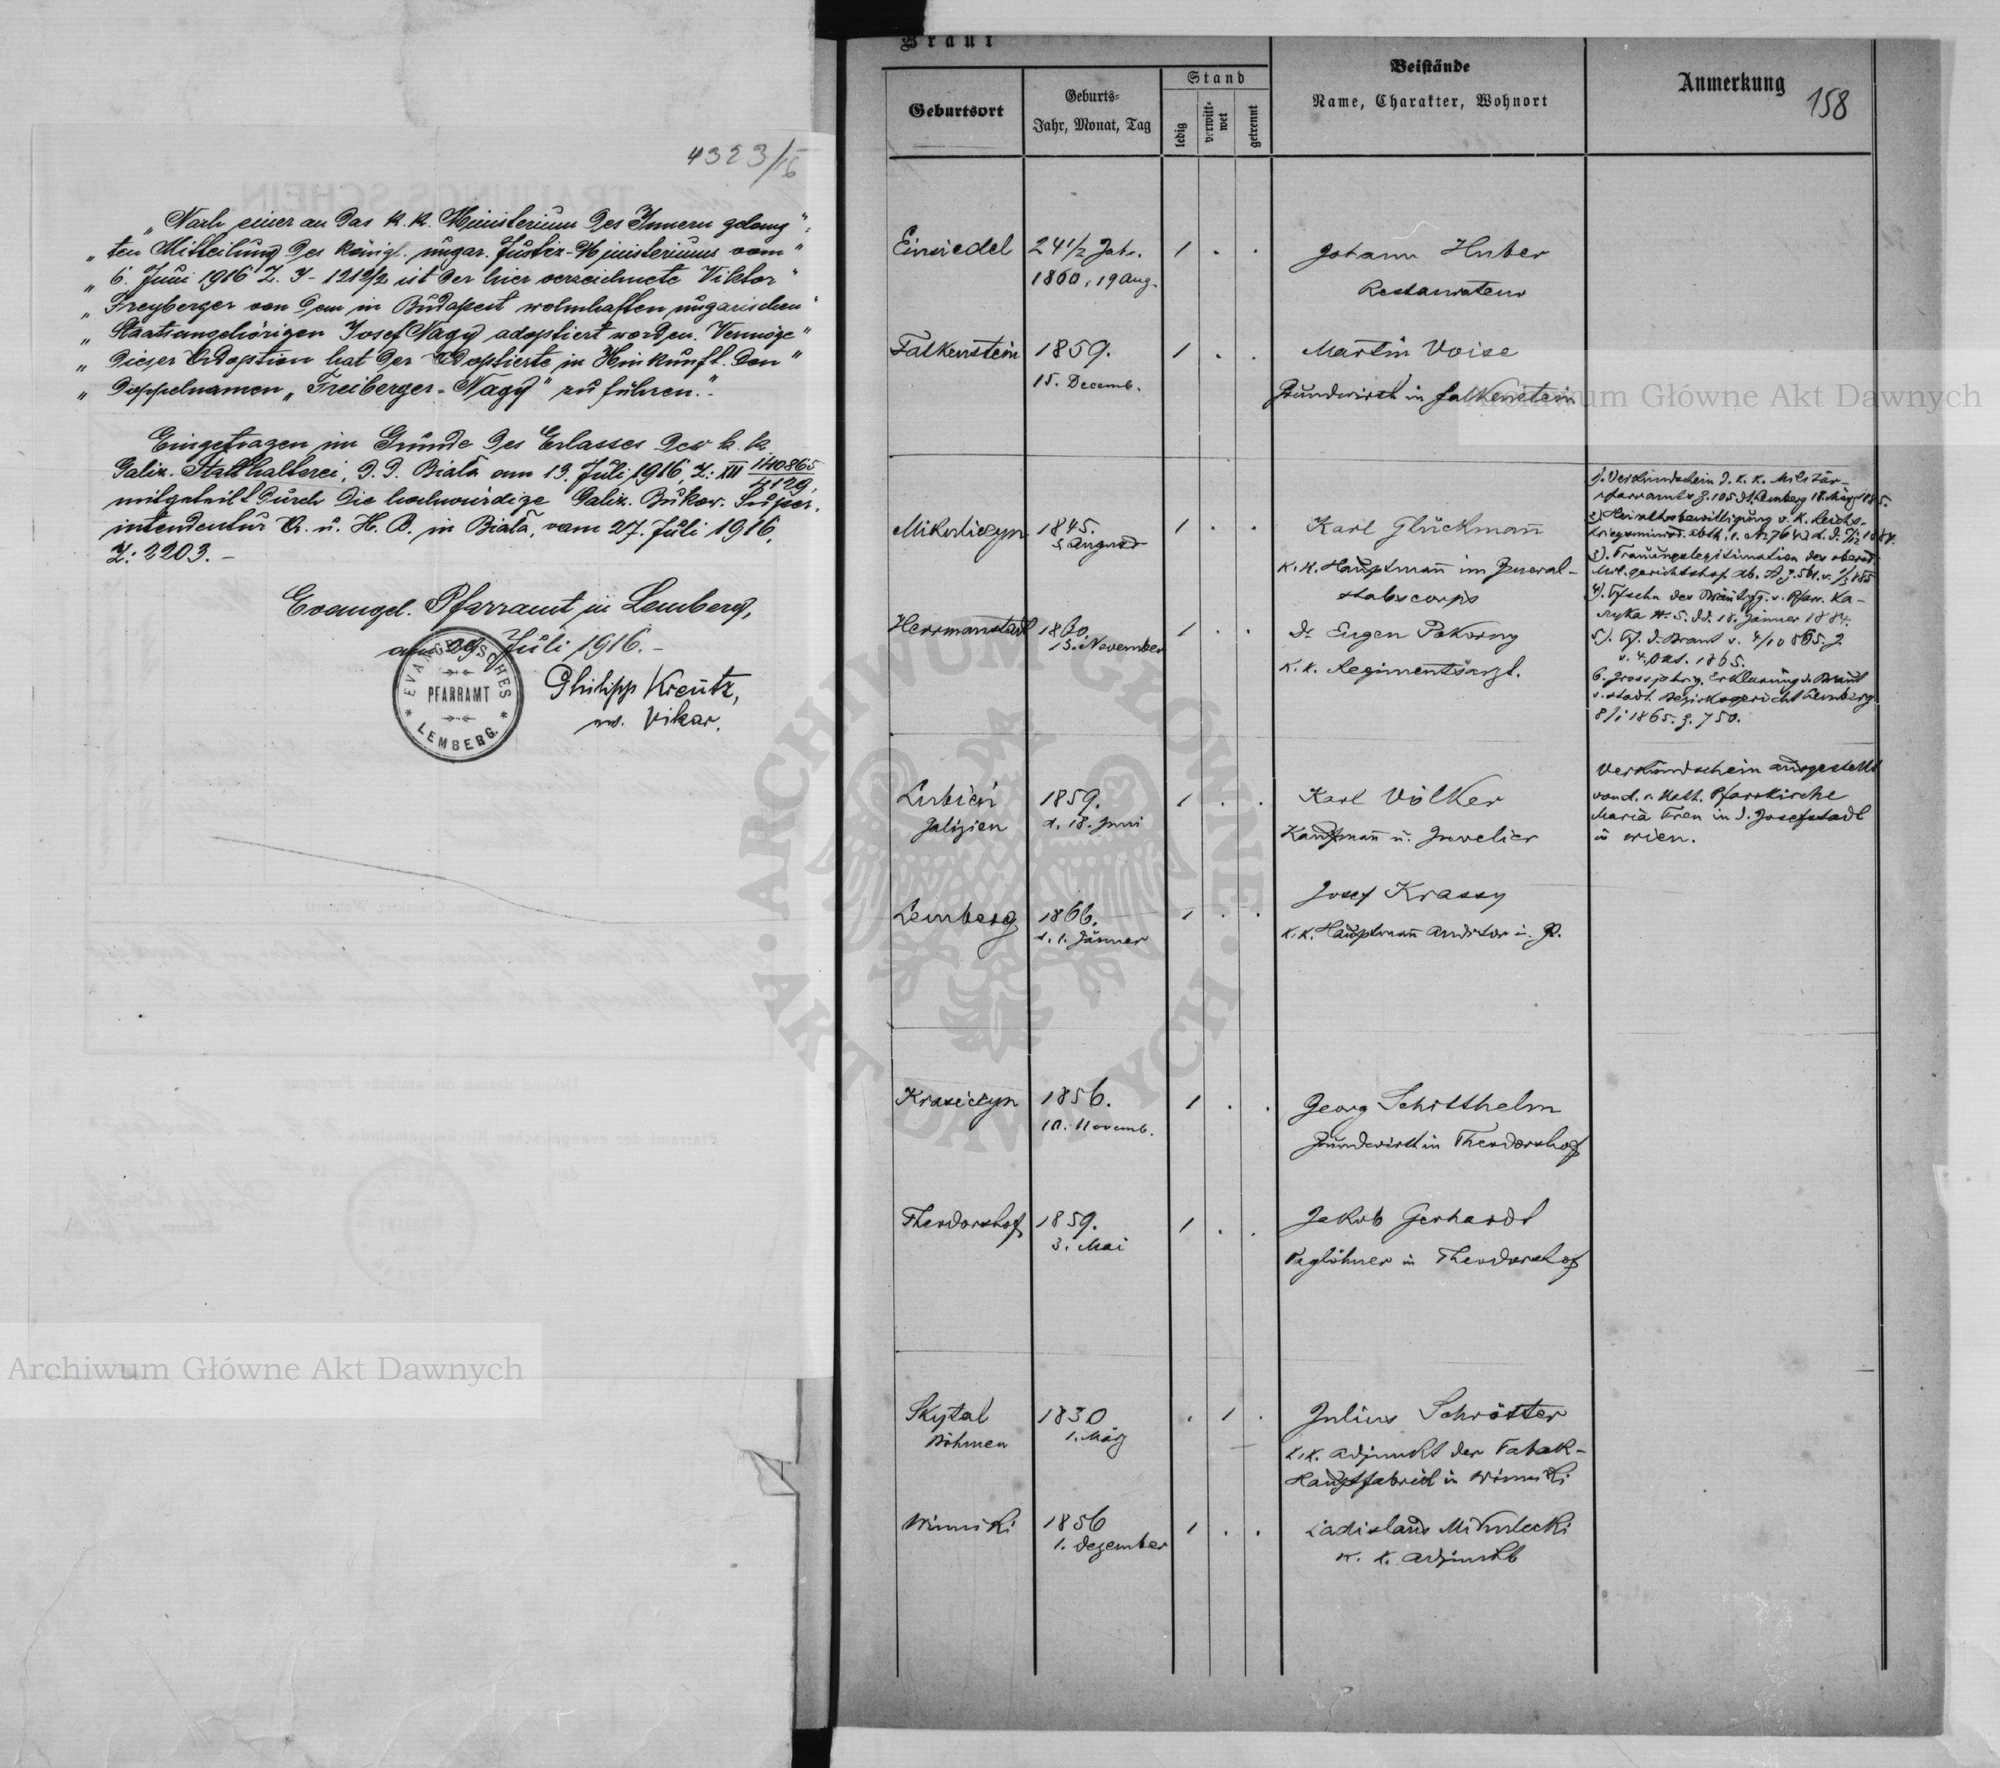 4323/16
„Nach einer an das k. k. Ministerium des Innern gelang-"
„ten Mitteilung des königl. ungar. Justiz-Ministeriums vom"
„6. Juni 1916 Z. ist der hier verzeichnete Viktor"
„Freyberger von dem in Budapest wohnhaften ungarischen"
„Staatsangehörigen Josef Nagy adoptiert worden. Vermöge"
„dieser Adoption hat der Adoptierte in Hinkunft den"
„Doppelnamen „Freiberger-Nagy" zu führen."-
Eingetragen im Grunde des Erlasses der k. k.
Galiz. Statthalterei, d. d. Biała am 13. Juli 1916, Z: XII 140865/4129,
mitgeteilt durch die hochwürdige Galiz. Bukow. Super-
intendentur A. u. H. B. in Biała, vom 27. Juli 1916,
Z: 2203.-
Evangel. Pfarramt in Lemberg,
am 29. Juli 1916.-
Philipp Kreutz,
Vikar.
* EVANGELISCHES * PFARRAMT LEMBERG.
Braut
Geburtsort
Geburts-
Jahr, Monat, Tag
Stand
ledig
verwitt-
wet
getrennt
Beistände
Name, Charakter, Wohnort
Anmerkung
158
Einsiedel 24 1/2 Jahr. 1 . . Johann Huber
1860, 19 Aug. Restaurateur
Falkenstein 1859. 1 . . Martin Voise
15. Decemb. Grundwirth in Falkenstein
1). Verkündschein d. k. k. Militär-
pfarramts Z. 105 Lemberg 18. März 1885.
2) Heirathsbewilligung v. k. Reichs-
3). Trauungslegitimation des
4). Tfschn des Bräutg. v. Pfarr. Ka-
# 5. dd. 18. Jänner 1884.
5). Tf. d. Braut v. 4/10 865. J.
v. 4. Okt. 1865.
6. Grossjährig. Erklärung d. Braut
v. städt. Bezirksgericht Lemberg
8/1 1865. Z. 750.
Mikuliczyn 1845. 1 . . Karl Glückmann
August k. k. Hauptmann im General-
stabscorps
Herrmannstadt 1860. 1 . . Dr Eugen Pokorny
13. November k. k. Regimentsarzt.
Lubień 1859. 1 . . Karl Völker
Galizien d. 18. Juni Kaufmann u. Juwelier
Verkündschein ausgestellt
von d. r. kath. Pfarrkirche
Maria Treu in d. Josefstadt
in Wien.
Josef Krassy
Lemberg 1866. 1 . . k. k. Hauptmann Auditor i. P.
d. 1. Jänner
Krasiczyn 1856. 1 . . Georg Schitthelm
10. Novemb. Grundwirth in Theodorshof
Theodorshof 1859. 1 . . Jakob Gerhardt
3. Mai Taglöhner in Theodorshof
Skytal 1830 . 1 . Julius Schrötter
Böhmen 1. März k. k. Adjunkt der Tabak-
Hauptfabrik in Winniki
Winniki 1856 1 . . Ladislaus Mikulecki
1. Dezember k. k. Adjunkt
Archiwum Główne Akt Dawnych
Archiwum Główne Akt Dawnych
ARCHIWUM GŁÓWNE • AKT DAWNYCH •